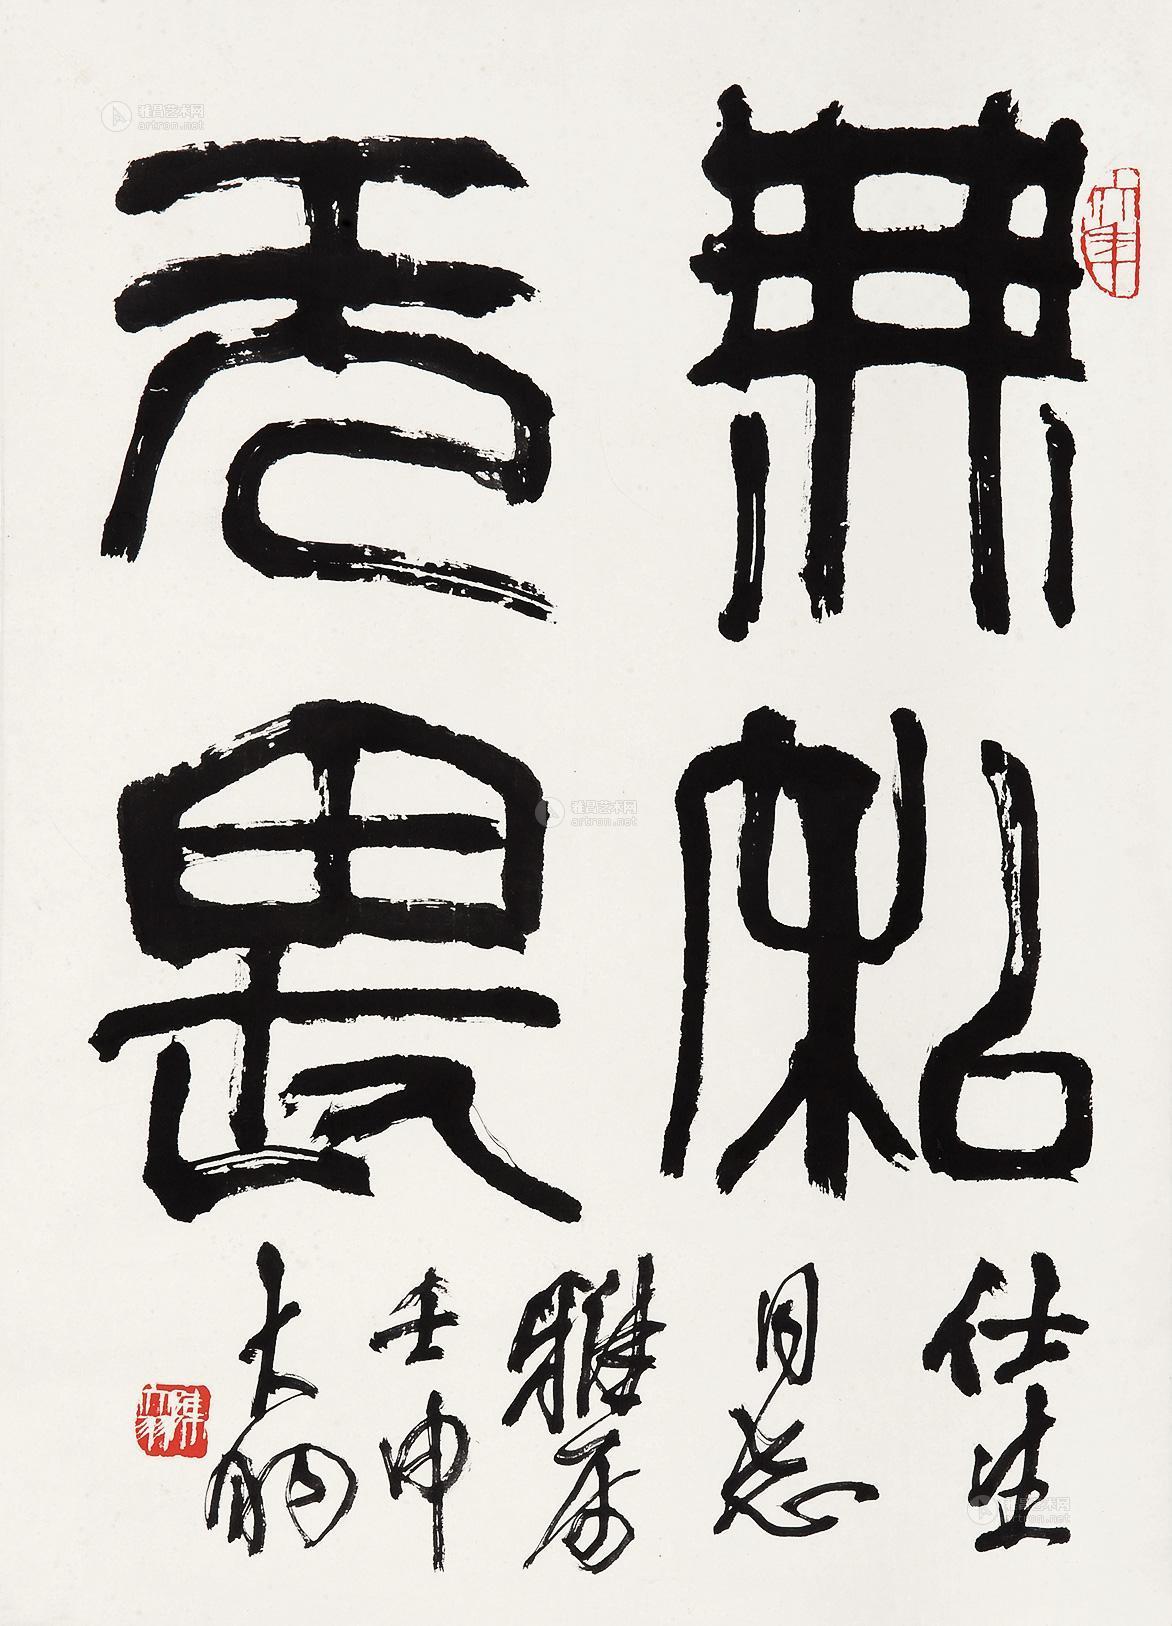 無私
无畏
仕生
同志
雅属
壬申
大羽
陳大羽
雅昌艺术网
artron.net
雅昌艺术网
artron.net
雅昌艺术网
artron.net